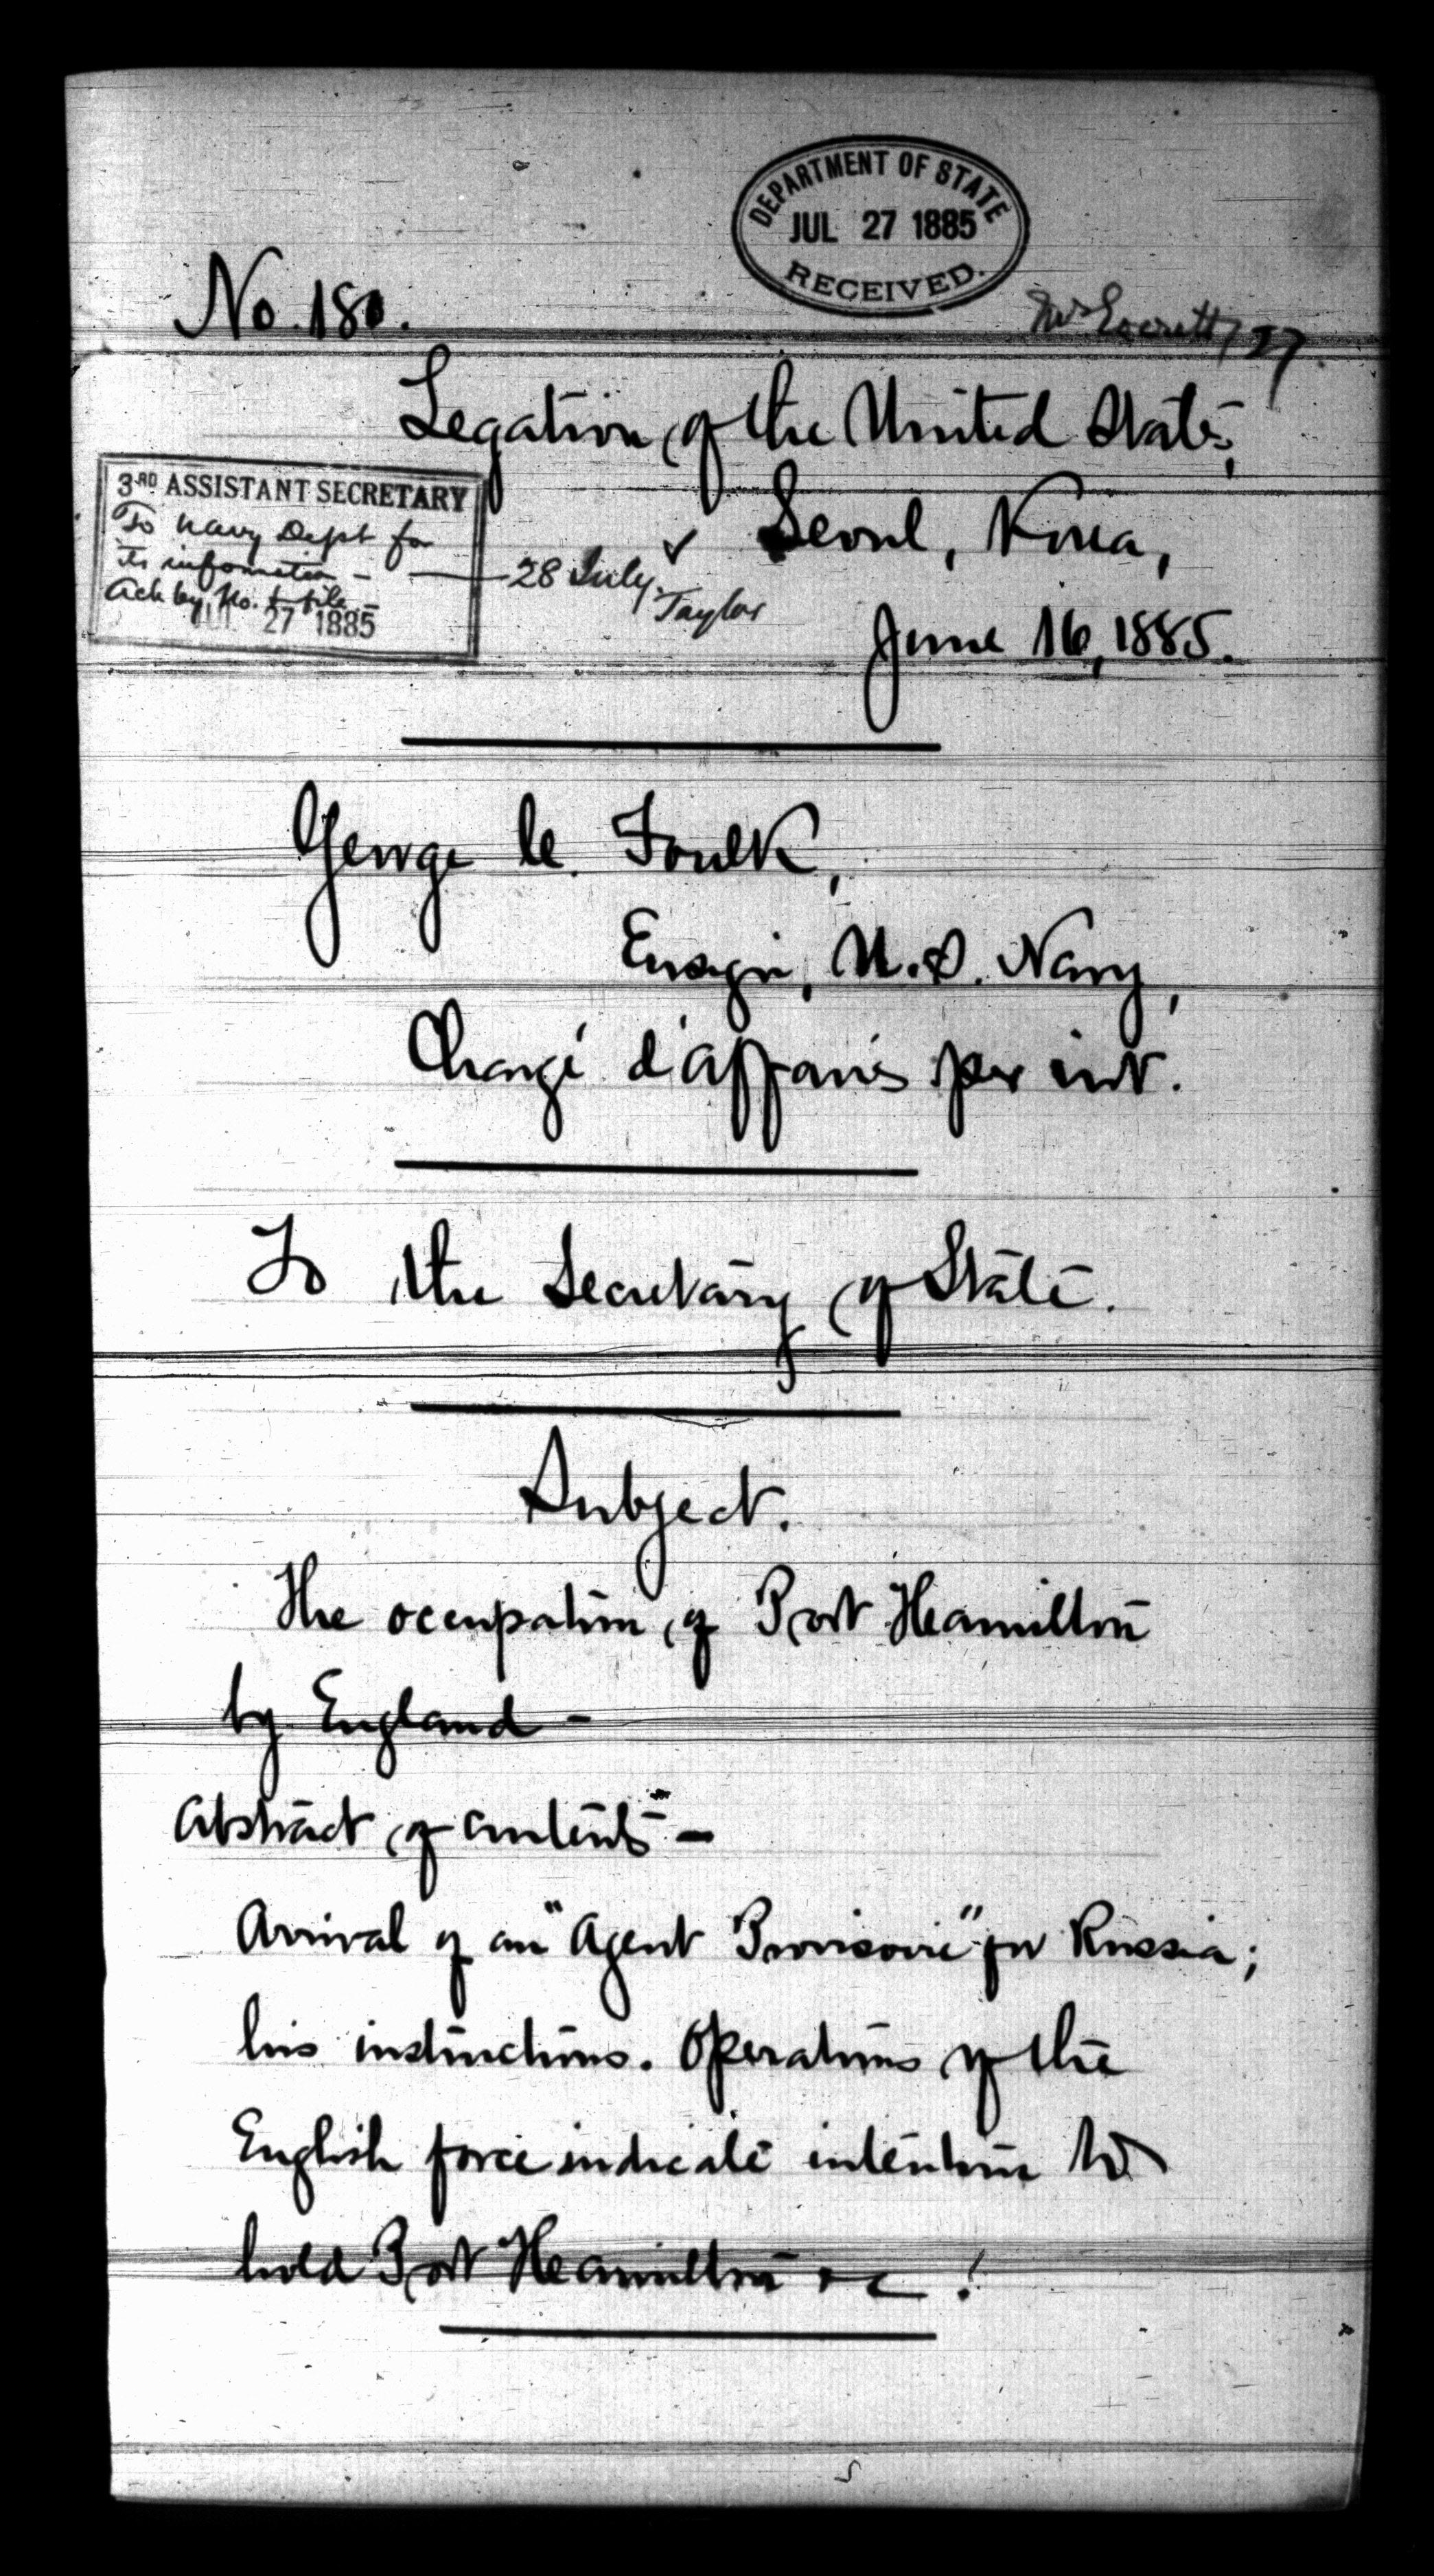 DEPARTMENT OF STATE
JUL 27 1885
RECEIVED.
No. 180.
Mr Everett / 27.
Legation of the United States,
Seoul, Korea,
June 16, 1885.
3RD ASSISTANT SECRETARY
To Navy Dept for
its information -
Ack by No. & file -
JUL 27 1885
28 July.
Taylor
George C. Foulk,
Ensign, U.S. Navy,
Chargé d'affaires per int.
To the Secretary of State.
Subject.
The occupation of Port Hamilton
by England -
Abstract of contents -
Arrival of an "Agent Provisoire" for Russia;
his instructions. Operations of the
English force indicate intention to
hold Port Hamilton &c !